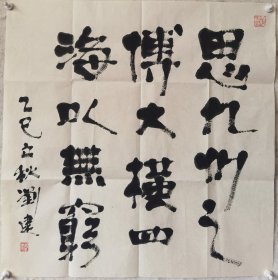 思九州之
博大橫四
海以無窮
乙巳立秋劉建